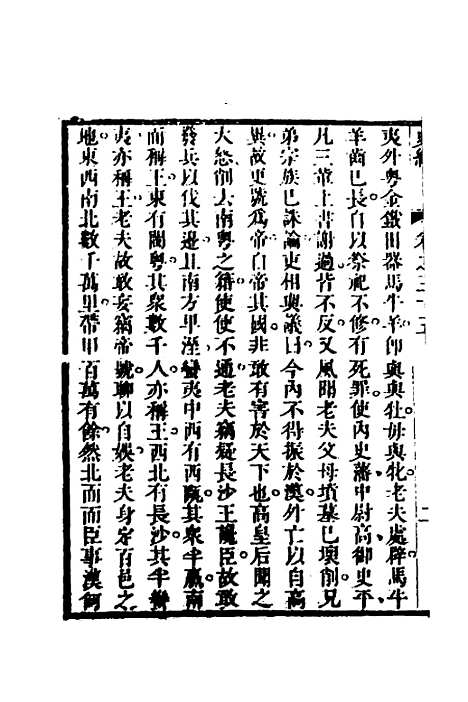 夷外粤金鐵田器馬牛羊卽與與牡毋與牝老夫處辟馬牛
羊齒已長自以祭祀不修有死罪使内史藩中尉高御史平
凡三輩上書謝過皆不反又風聞老夫父母墳墓已壞削兄
弟宗族已誅論吏相與議曰今内不得振於漢外亡以自高
異故更號爲帝自帝其國非敢有害於天下也高皇后聞之
大怒削去南粤之籍使使不通老夫竊疑長沙王讒臣故敢
發兵以伐其邊且南方卑溼蠻夷中西有西甌其衆半羸南
面稱王東有閩粤其衆數千人亦稱王西北有長沙其半蠻
夷亦稱王老夫故敢妄竊帝號聊以自娛老夫身定百邑之
地東西南北數千萬里帶甲百萬有餘然北面而臣事漢何